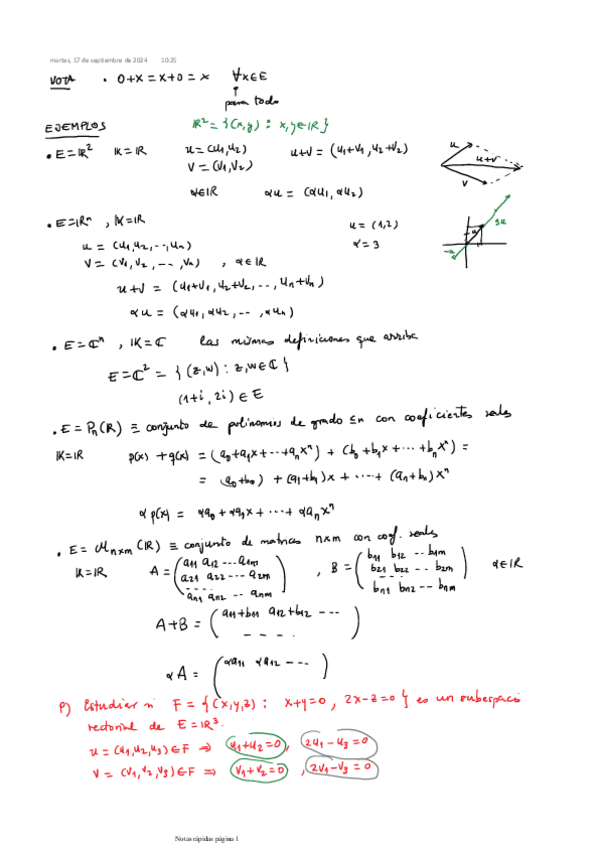 martes, 17 de septiembre de 2024 10:25
NOTA • 0+x = x+0 = x ∀x∈E
↑
para todo
EJEMPLOS ℝ² = {(x,y) : x,y∈ℝ}
• E=ℝ² 𝕂=ℝ u=(u₁,u₂) u+v = (u₁+v₁, u₂+v₂)
v=(v₁,v₂)
α∈ℝ αu = (αu₁, αu₂)
u
u+v
v
• E=ℝⁿ, 𝕂=ℝ u=(1,2)
u = (u₁, u₂, ..., uₙ) α=3
v = (v₁, v₂, ---, vₙ), α∈ℝ
3u
u
-u
u+v = (u₁+v₁, u₂+v₂, ..., uₙ+vₙ)
αu = (αu₁, αu₂, --, αuₙ)
• E=ℂⁿ, 𝕂=ℂ las mismas definiciones que arriba
E=ℂ² = {(z,w) : z,w∈ℂ}
(1+i, 2i) ∈ E
• E = Pₙ(ℝ) ≡ conjunto de polinomios de grado ≤n con coeficientes reales
𝕂=ℝ p(x) + q(x) = (a₀+a₁x+···+aₙxⁿ) + (b₀+b₁x+···+bₙxⁿ) =
= (a₀+b₀) + (a₁+b₁)x + ····+ (aₙ+bₙ)xⁿ
αp(x) = αa₀ + αa₁x + ···+ αaₙxⁿ
• E = ℳₙₓₘ(ℝ) ≡ conjunto de matrices n×m con coef. reales
𝕂=ℝ A = (a₁₁ a₁₂ ... a₁ₘ, B = (b₁₁ b₁₂ -- b₁ₘ α∈ℝ
a₂₁ a₂₂ --- a₂ₘ b₂₁ b₂₂ -- b₂ₘ
- - - -
aₙ₁ aₙ₂ -- aₙₘ) bₙ₁ bₙ₂ -- bₙₘ)
A+B = (a₁₁+b₁₁ a₁₂+b₁₂ ---
- - - -)
αA = (αa₁₁ αa₁₂ ---)
P) Estudiar si F = {(x,y,z) : x+y=0, 2x-z=0} es un subespacio
vectorial de E=ℝ³.
u = (u₁,u₂,u₃)∈F ⇒ u₁+u₂=0, 2u₁-u₃=0
v = (v₁,v₂,v₃)∈F ⇒ v₁+v₂=0, 2v₁-v₃=0
Notas rápidas página 1